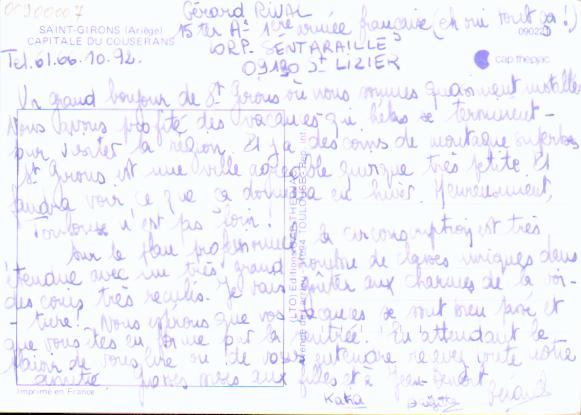 Gérard RIVAL
15 ter Av 1ère armée française (eh oui tout ça !)
SAINT-GIRONS (Ariège)
CAPITALE DU COUSERANS
LORP. SENTARAILLE
09190 St LIZIER
Tel. 61.66.10.92.
cap.theojac
Un grand bonjour de St Girons où nous sommes quasiment installés
Nous avons profité des vacances qui hélas se terminent
pour visiter la région. Il y a des coins de montagne superbes
St Girons est une ville agréable quoique très petite. Il
faudra voir ce que ça donnera en hiver. Heureusement,
Toulouse n'est pas loin !
Sur le plan professionnel la circonscription est très
étendue avec un très grand nombre de classes uniques dans
des coins très reculés. Je vais goûter aux charmes de la voi-
-ture ! Nous espérons que vos vacances se sont bien passé et
que vous êtes en forme pour la rentrée. En attendant le
plaisir de vous lire ou de vous entendre recevez toute notre
amitié. Grosses bises aux filles et à Jean-Benoit
Gérard
Katia
Imprimé en France